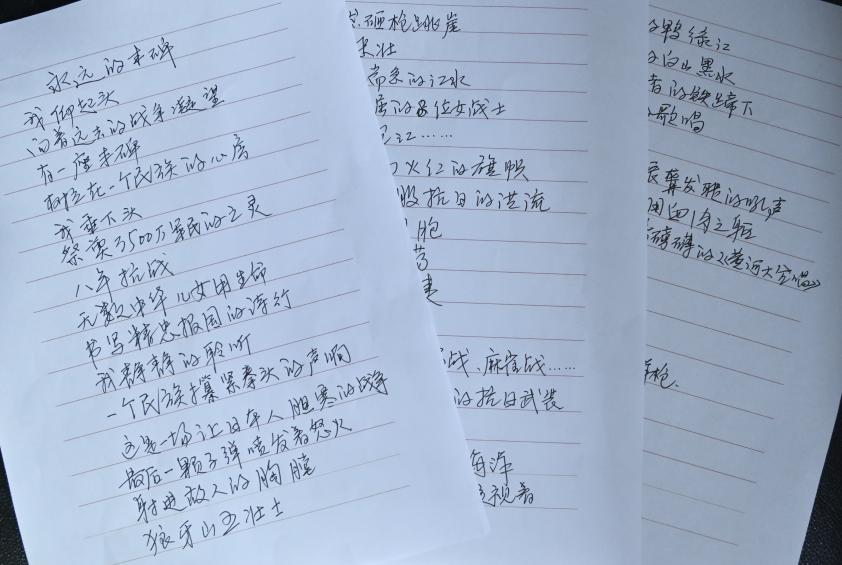 永远的丰碑
我仰起头
向着远去的战争凝望
有一座丰碑
树立在一个民族的心房
我垂下头
祭奠3500万军民的亡灵
八年抗战
无数中华儿女用生命
书写精忠报国的诗行
我静静的聆听
一个民族攥紧拳头的声响
这是一场让日本人胆寒的战争
最后一颗子弹喷发着怒火
射进敌人的胸膛
狼牙山五壮士
砸枪跳崖
壮
的江水
的8位女战士
江……
火红的旗帜
股抗日的洪流
胞
战、麻雀战……
的抗日武装
海洋
视着
鸭绿江
白山黑水
者的铁蹄下
歌唱
发聩的吼声
之躯
磅礴的《黄河大合唱》
枪.